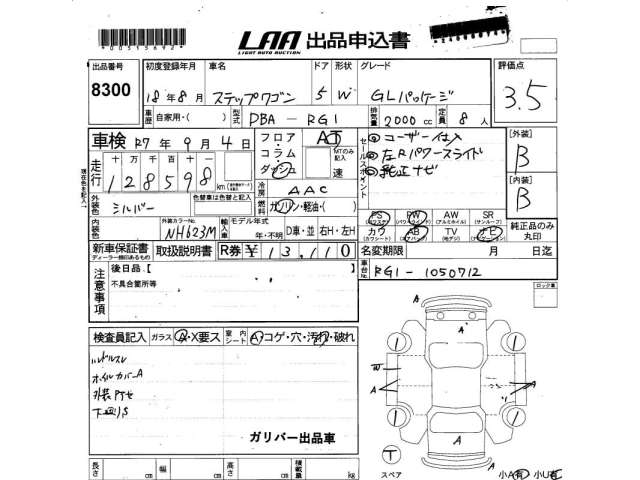 *00515692*
LAA LIGHT AUTO AUCTION 出品申込書
出品番号 8300
初度登録年月 18年8月
車名 ステップワゴン
ドア 5
形状 W
グレード GLパッケージ
評価点 3.5
車歴 自家用・( )
型式 DBA - RG1
排気量 2000 cc
定員 8 人
車検 R7年9月4日
フロア・コラム・ダッシュ
AT
MTのみ記入
速
セールスポイント
①ユーザー仕入
②左Rパワースライド
③純正ナビ
[外装] B
[内装] B
走行 十万千百十
128598 km
冷房 AAC
外装色 シルバー
色替車は色替と記入
燃料 ガソリン・軽油・( )
内装色
外装カラーNo NH623M
輸入車 モデル年式 年・不明
D車・並 右H・左H
PS (パワステ) PW (パワーウインド) AW (アルミホイル) SR (サンルーフ)
カワ (カワシート) AB (エアバック) TV (地デジ) ナビ
純正品のみ丸印
新車保証書 ディーラー捺印あるもの
取扱説明書
R券 ¥13,110
名変期限 月 日迄
注意事項
後日品【
不具合箇所等
車台No RG1-1050712
ロック車
検査員記入
ガラス A・X要ス
室内シート A・コゲ・穴・汚れ・破れ
ハンドルスレ
ホイルカバーA
外装PTセ
下廻りS
ガリバー出品車
長さ cm 幅 cm 高さ cm 積載量 kg
A
A
A
W
A
A
A
1
1
1
1
T
スペア
A
小A有 小U有